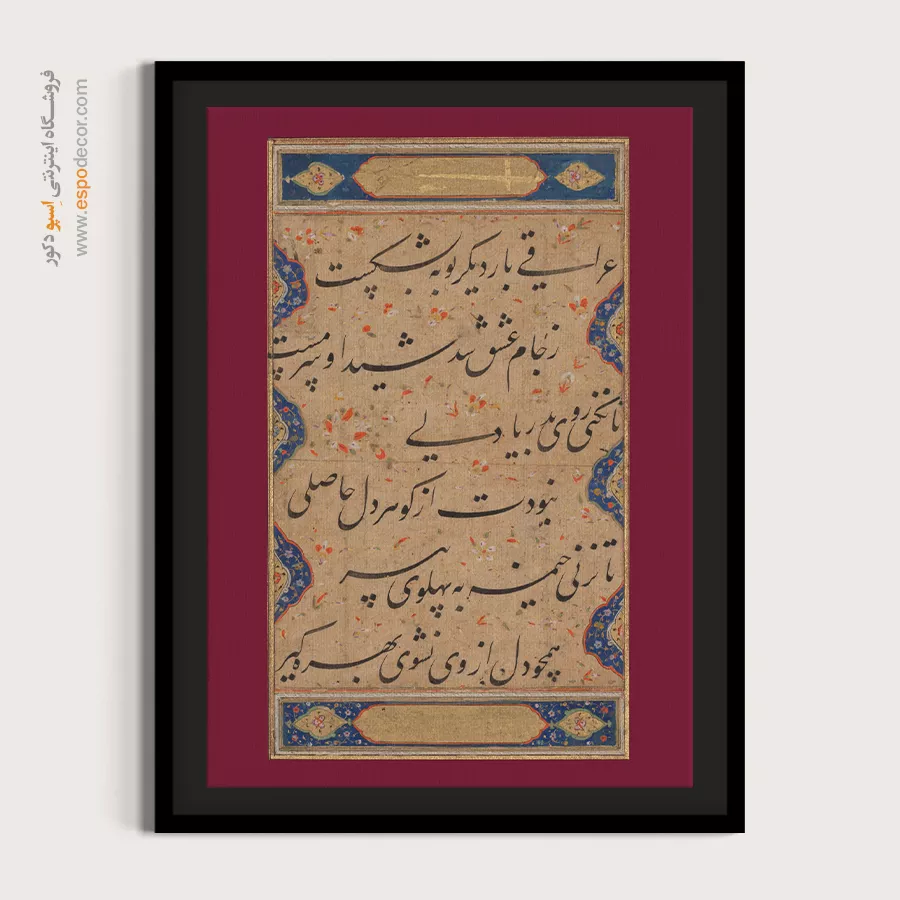 فروشگاه اینترنتی اِسپو دکور
www.espodecor.com
عراقی بار دیکر توبه بشکست
ز جام عشق شد شیدا و سرمست
تا نکنی روی بدریا دلی
نبودت از کوهر دل حاصلی
تا نزنی خیمه به پهلوی پیر
همچو دل از وی نشوی بهره کیر